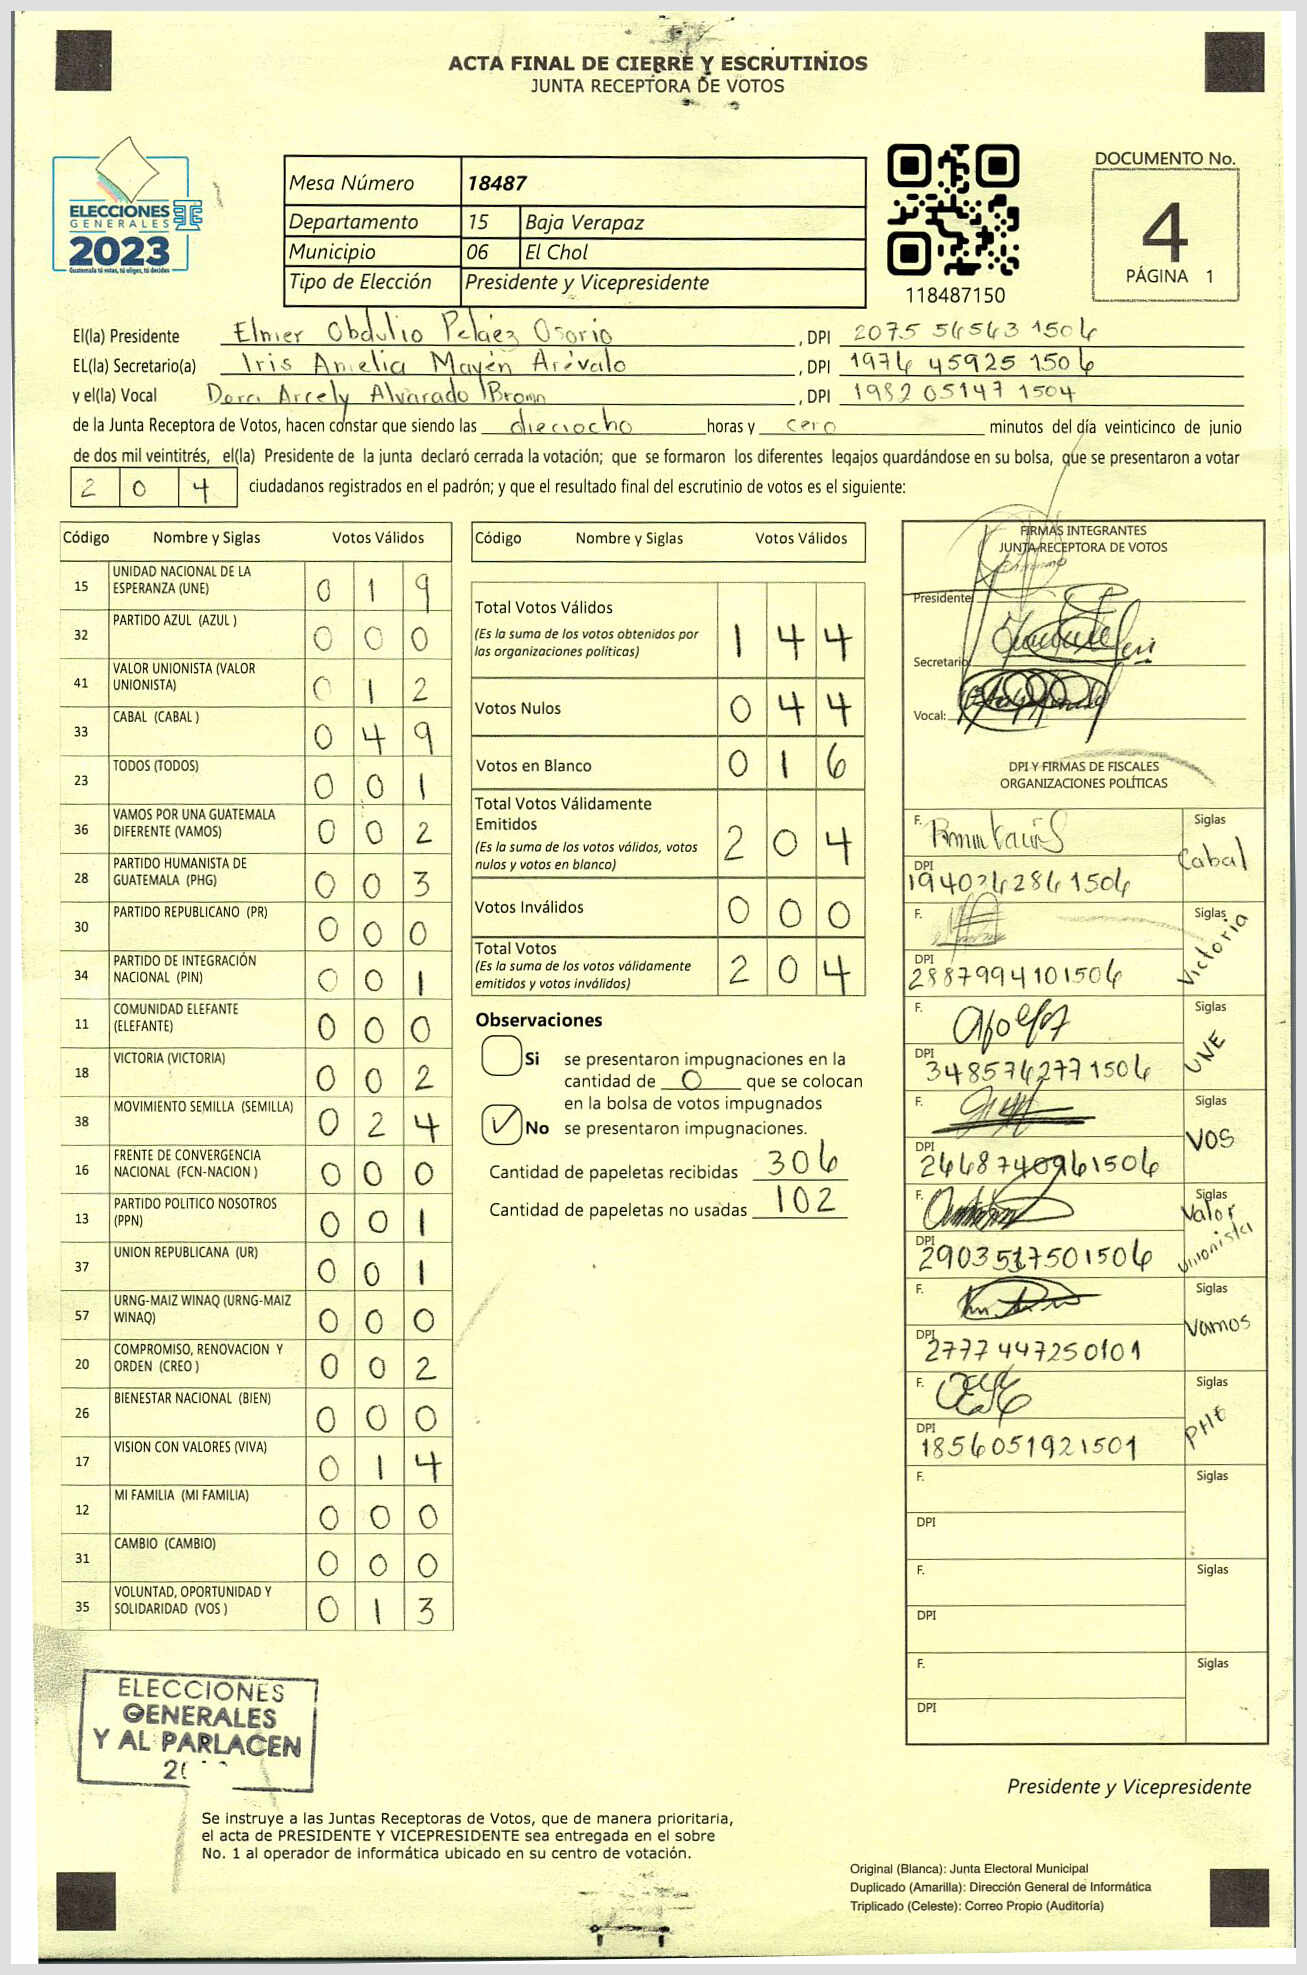 ACTA FINAL DE CIERRE Y ESCRUTINIOS
JUNTA RECEPTORA DE VOTOS
ELECCIONES
GENERALES
2023
Guatemala tú votas, tú eliges, tú decides
Mesa Número 18487
Departamento 15 Baja Verapaz
Municipio 06 El Chol
Tipo de Elección Presidente y Vicepresidente
118487150
DOCUMENTO No.
4
PÁGINA 1
El(la) Presidente Elmer Obdulio Peláez Osorio , DPI 2075 56563 1506
EL(la) Secretario(a) Iris Amelia Mayén Arévalo , DPI 1976 45925 1506
y el(la) Vocal Dora Arcely Alvarado , DPI 1982 05147 1504
de la Junta Receptora de Votos, hacen constar que siendo las dieciocho horas y cero minutos del día veinticinco de junio
de dos mil veintitrés, el(la) Presidente de la junta declaró cerrada la votación; que se formaron los diferentes legajos guardándose en su bolsa, que se presentaron a votar
2 0 4 ciudadanos registrados en el padrón; y que el resultado final del escrutinio de votos es el siguiente:
Código Nombre y Siglas Votos Válidos
15 UNIDAD NACIONAL DE LA ESPERANZA (UNE) 0 1 9
32 PARTIDO AZUL (AZUL ) 0 0 0
41 VALOR UNIONISTA (VALOR UNIONISTA) 0 1 2
33 CABAL (CABAL ) 0 4 9
23 TODOS (TODOS) 0 0 1
36 VAMOS POR UNA GUATEMALA DIFERENTE (VAMOS) 0 0 2
28 PARTIDO HUMANISTA DE GUATEMALA (PHG) 0 0 3
30 PARTIDO REPUBLICANO (PR) 0 0 0
34 PARTIDO DE INTEGRACIÓN NACIONAL (PIN) 0 0 1
11 COMUNIDAD ELEFANTE (ELEFANTE) 0 0 0
18 VICTORIA (VICTORIA) 0 0 2
38 MOVIMIENTO SEMILLA (SEMILLA) 0 2 4
16 FRENTE DE CONVERGENCIA NACIONAL (FCN-NACION ) 0 0 0
13 PARTIDO POLITICO NOSOTROS (PPN) 0 0 1
37 UNION REPUBLICANA (UR) 0 0 1
57 URNG-MAIZ WINAQ (URNG-MAIZ WINAQ) 0 0 0
20 COMPROMISO, RENOVACION Y ORDEN (CREO ) 0 0 2
26 BIENESTAR NACIONAL (BIEN) 0 0 0
17 VISION CON VALORES (VIVA) 0 1 4
12 MI FAMILIA (MI FAMILIA) 0 0 0
31 CAMBIO (CAMBIO) 0 0 0
35 VOLUNTAD, OPORTUNIDAD Y SOLIDARIDAD (VOS ) 0 1 3
Código Nombre y Siglas Votos Válidos
Total Votos Válidos 1 4 4
(Es la suma de los votos obtenidos por
las organizaciones políticas)
Votos Nulos 0 4 4
Votos en Blanco 0 1 6
Total Votos Válidamente
Emitidos 2 0 4
(Es la suma de los votos válidos, votos
nulos y votos en blanco)
Votos Inválidos 0 0 0
Total Votos 2 0 4
(Es la suma de los votos válidamente
emitidos y votos inválidos)
Observaciones
Si se presentaron impugnaciones en la
cantidad de 0 que se colocan
en la bolsa de votos impugnados
No se presentaron impugnaciones.
Cantidad de papeletas recibidas 306
Cantidad de papeletas no usadas 102
FIRMAS INTEGRANTES
JUNTA RECEPTORA DE VOTOS
Presidente
Secretario
Vocal:
DPI Y FIRMAS DE FISCALES
ORGANIZACIONES POLÍTICAS
F. Siglas Cabal
DPI 1940262861506
F. Siglas Victoria
DPI 2887994101506
F. Siglas UNE
DPI 3485762771506
F. Siglas VOS
DPI 2668740961506
F. Siglas Valor Unionista
DPI
F. Siglas Vamos
DPI 2777447250101
F. Siglas PHG
DPI 1856051921501
F. Siglas
DPI
F. Siglas
DPI
F. Siglas
DPI
ELECCIONES
GENERALES
Y AL PARLACEN
Presidente y Vicepresidente
Se instruye a las Juntas Receptoras de Votos, que de manera prioritaria,
el acta de PRESIDENTE Y VICEPRESIDENTE sea entregada en el sobre
No. 1 al operador de informática ubicado en su centro de votación.
Original (Blanca): Junta Electoral Municipal
Duplicado (Amarilla): Dirección General de Informática
Triplicado (Celeste): Correo Propio (Auditoría)